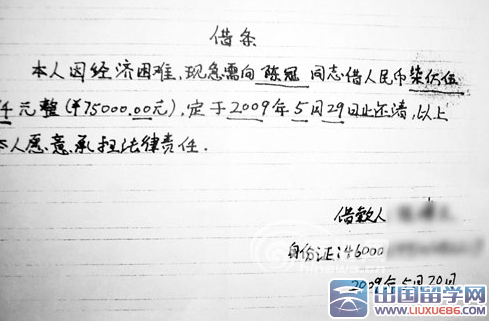 借条
本人因经济困难,现急需向 陈冠 同志借人民币柒万伍
仟元整(¥75000.00元),定于2009年5月29日止还清,以上
本人愿意承担法律责任.
借款人
身份证:46000
2009年5月20日
出国留学网
WWW.LIUXUE86.COM